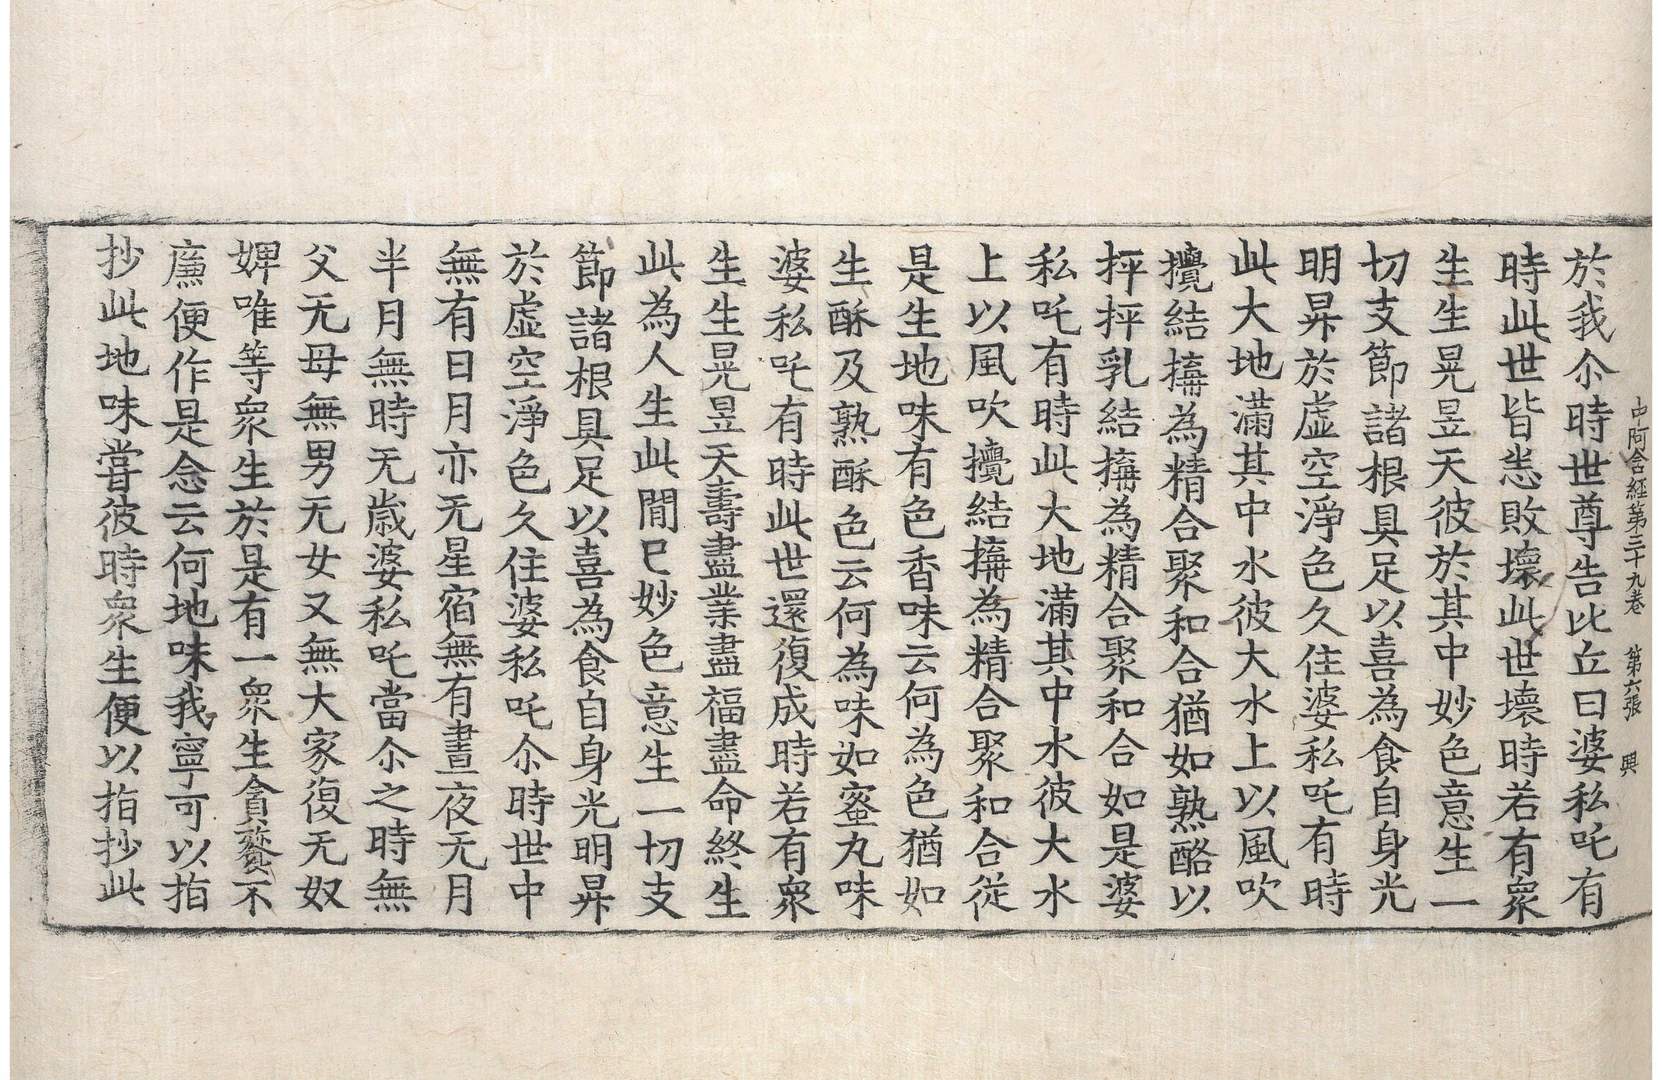 中阿含経第三十九巻　第六張　興
於我尒時世尊告比丘曰婆私吒有
時此世皆悉敗壞此世壞時若有衆
生生晃昱天彼於其中妙色意生一
切支節諸根具足以喜為食自身光
明昇於虛空淨色久住婆私吒有時
此大地滿其中水彼大水上以風吹
攪結搆為精合聚和合猶如熟酪以
抨抨乳結搆為精合聚和合如是婆
私吒有時此大地滿其中水彼大水
上以風吹攪結搆為精合聚和合從
是生地味有色香味云何為色猶如
生酥及熟酥色云何為味如蜜丸味
婆私吒有時此世還復成時若有衆
生生晃昱天壽盡業盡福盡命終生
此為人生此間已妙色意生一切支
節諸根具足以喜為食自身光明昇
於虛空淨色久住婆私吒尒時世中
無有日月亦无星宿無有晝夜无月
半月無時无歲婆私吒當尒之時無
父无母無男无女又無大家復无奴
婢唯等衆生於是有一衆生貪餮不
廉便作是念云何地味我寧可以指
抄此地味嘗彼時衆生便以指抄此